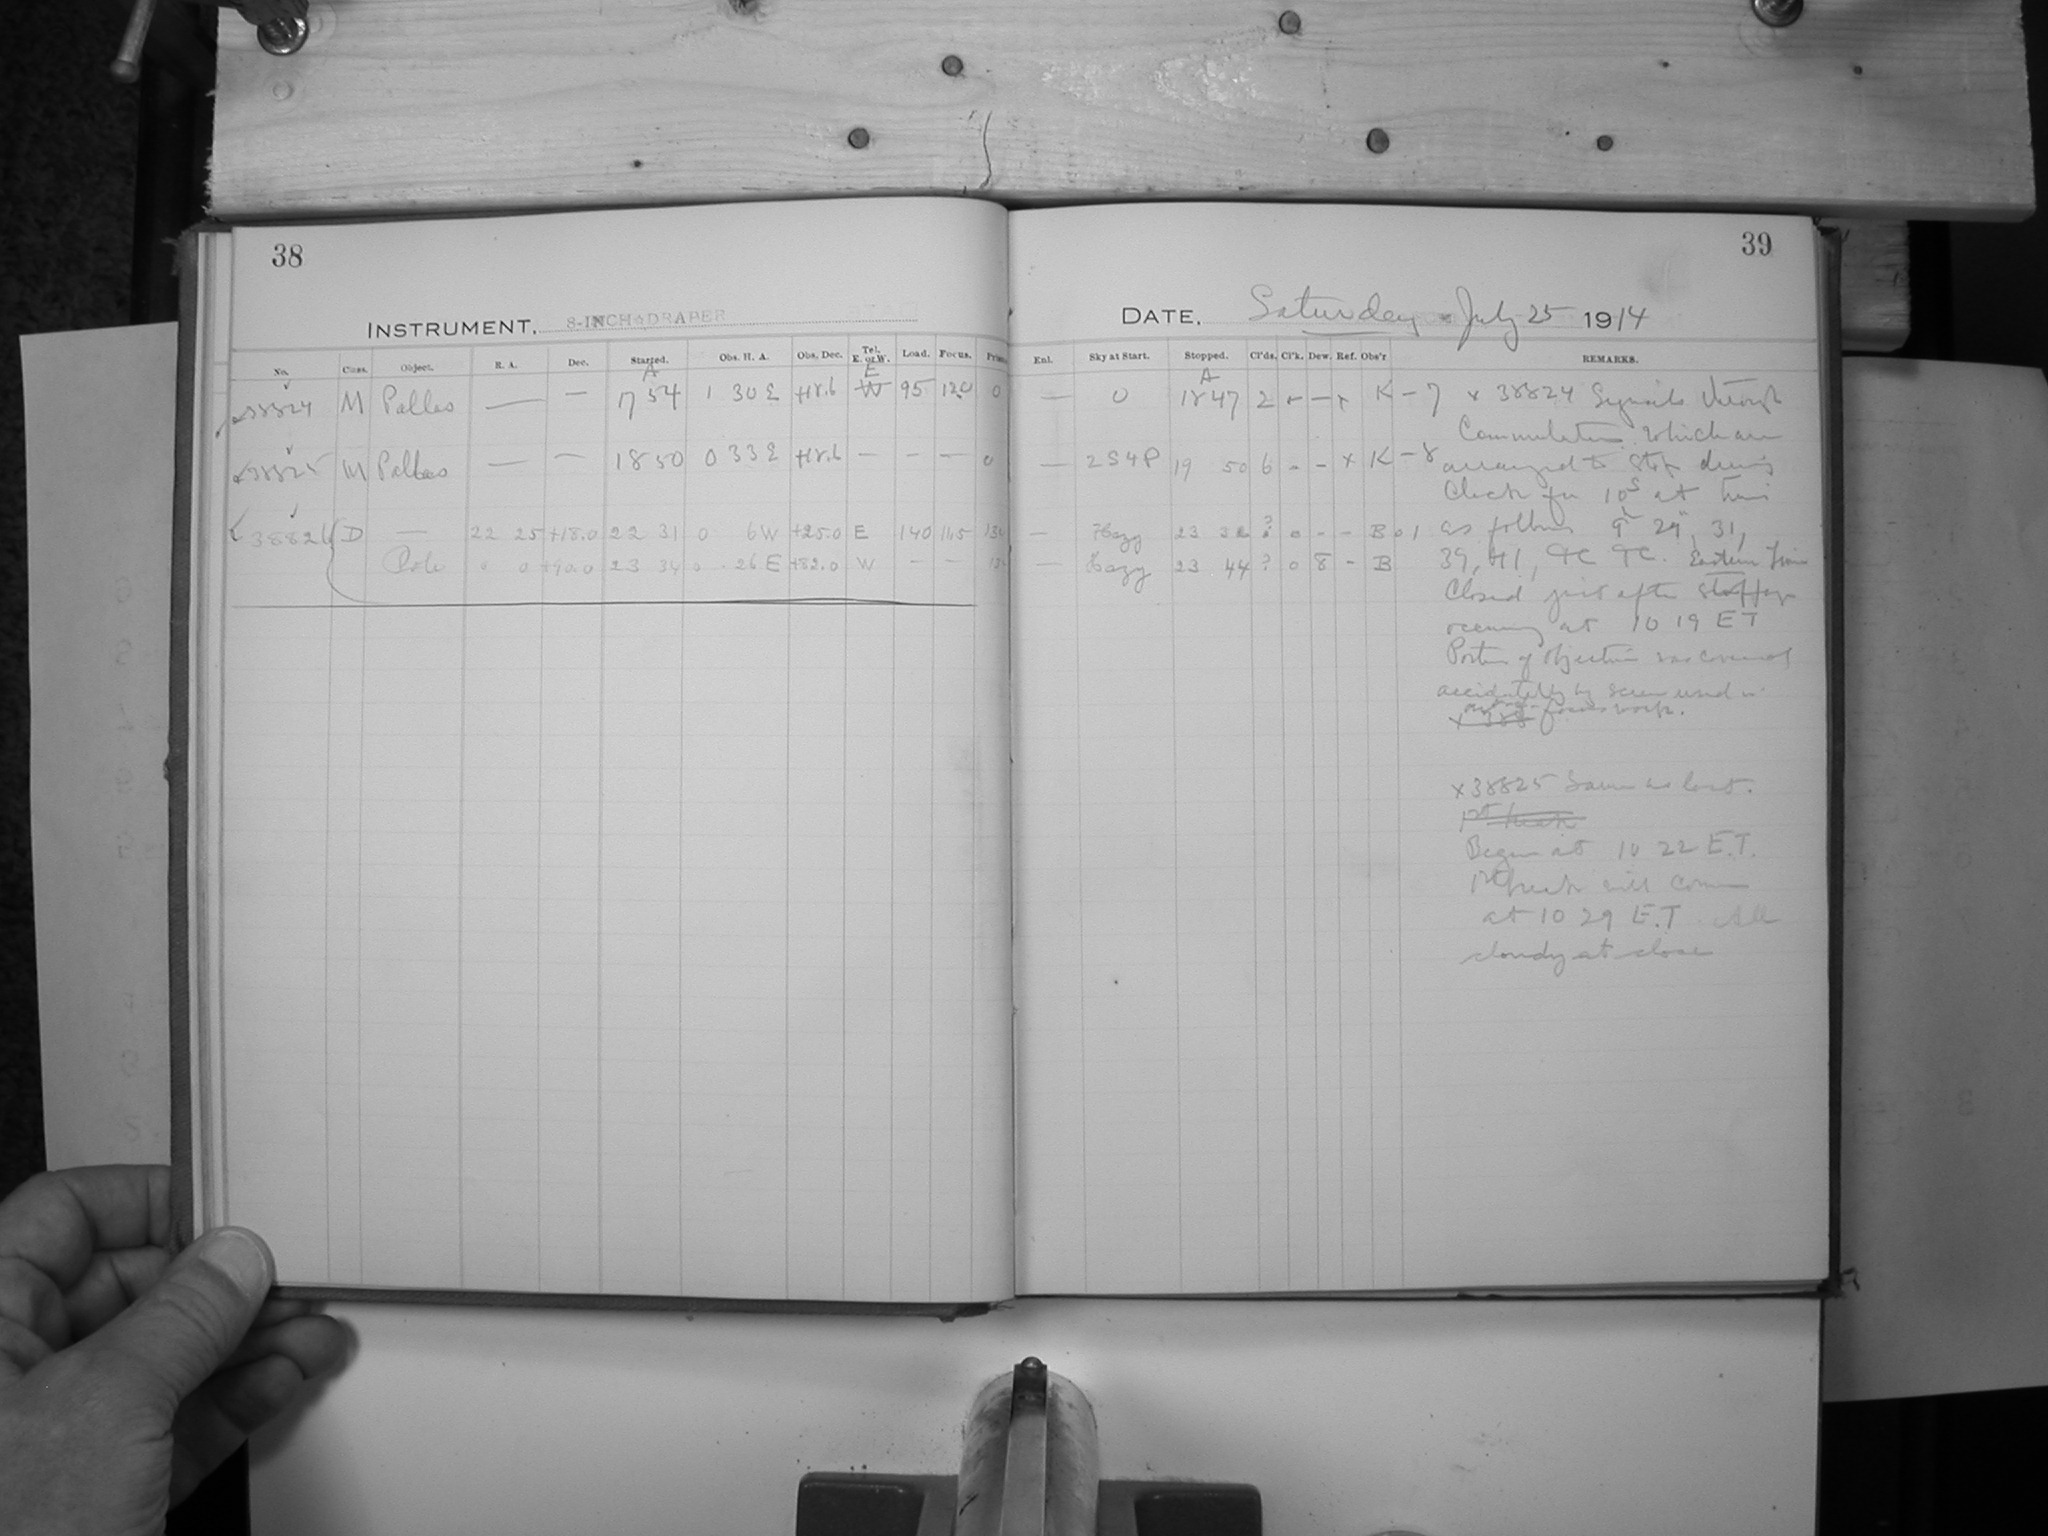 38
INSTRUMENT, 8-INCH DRAPER
No. Class. Object. R. A. Dec. Started. Obs. H. A. Obs. Dec. Tel. E. or W. Load. Focus. Prism
A E
38824 M Pallas — — 17 54 1 30 E +18.6 W 95 12.0 0
38825 M Pallas — — 18 50 0 33 E +18.6 — — — 0
38826 D — 22 25 +18.0 22 31 0 6 W +25.0 E 140 11.5
Pole 0 0 +90.0 23 34 0 26 E +82.0 W — —
39
DATE, Saturday July 25 1914
Enl. Sky at Start. Stopped. Cl'ds. Cl'k. Dew. Ref. Obs'r REMARKS.
A
— 0 18 47 2 - — K - 7
— 2S4P 19 50 6 - - x K - 8
— Hazy 23 ? 0 - - B 01
— Hazy 23 44 ? 0 8 - B
x 38824 Signals through
Commutator which are
arranged to stop driving
Clock for 10s at times
as follows 9h 29m, 31,
39, 41, &c &c. Eastern Time
Closed just after stoppage
occurring at 10 19 ET
Portion of objective was covered
accidentally by screen used in
focus work.
x 388
x 38825 Same as last.
1st break
Began at 10 22 E.T.
1st break will come
at 10 29 E.T. All
cloudy at close